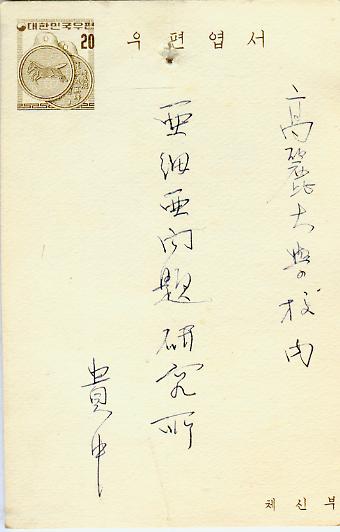 대한민국우편
20
우편엽서
高麗大學校內
亜細亜問題硏究所
貴中
체신부